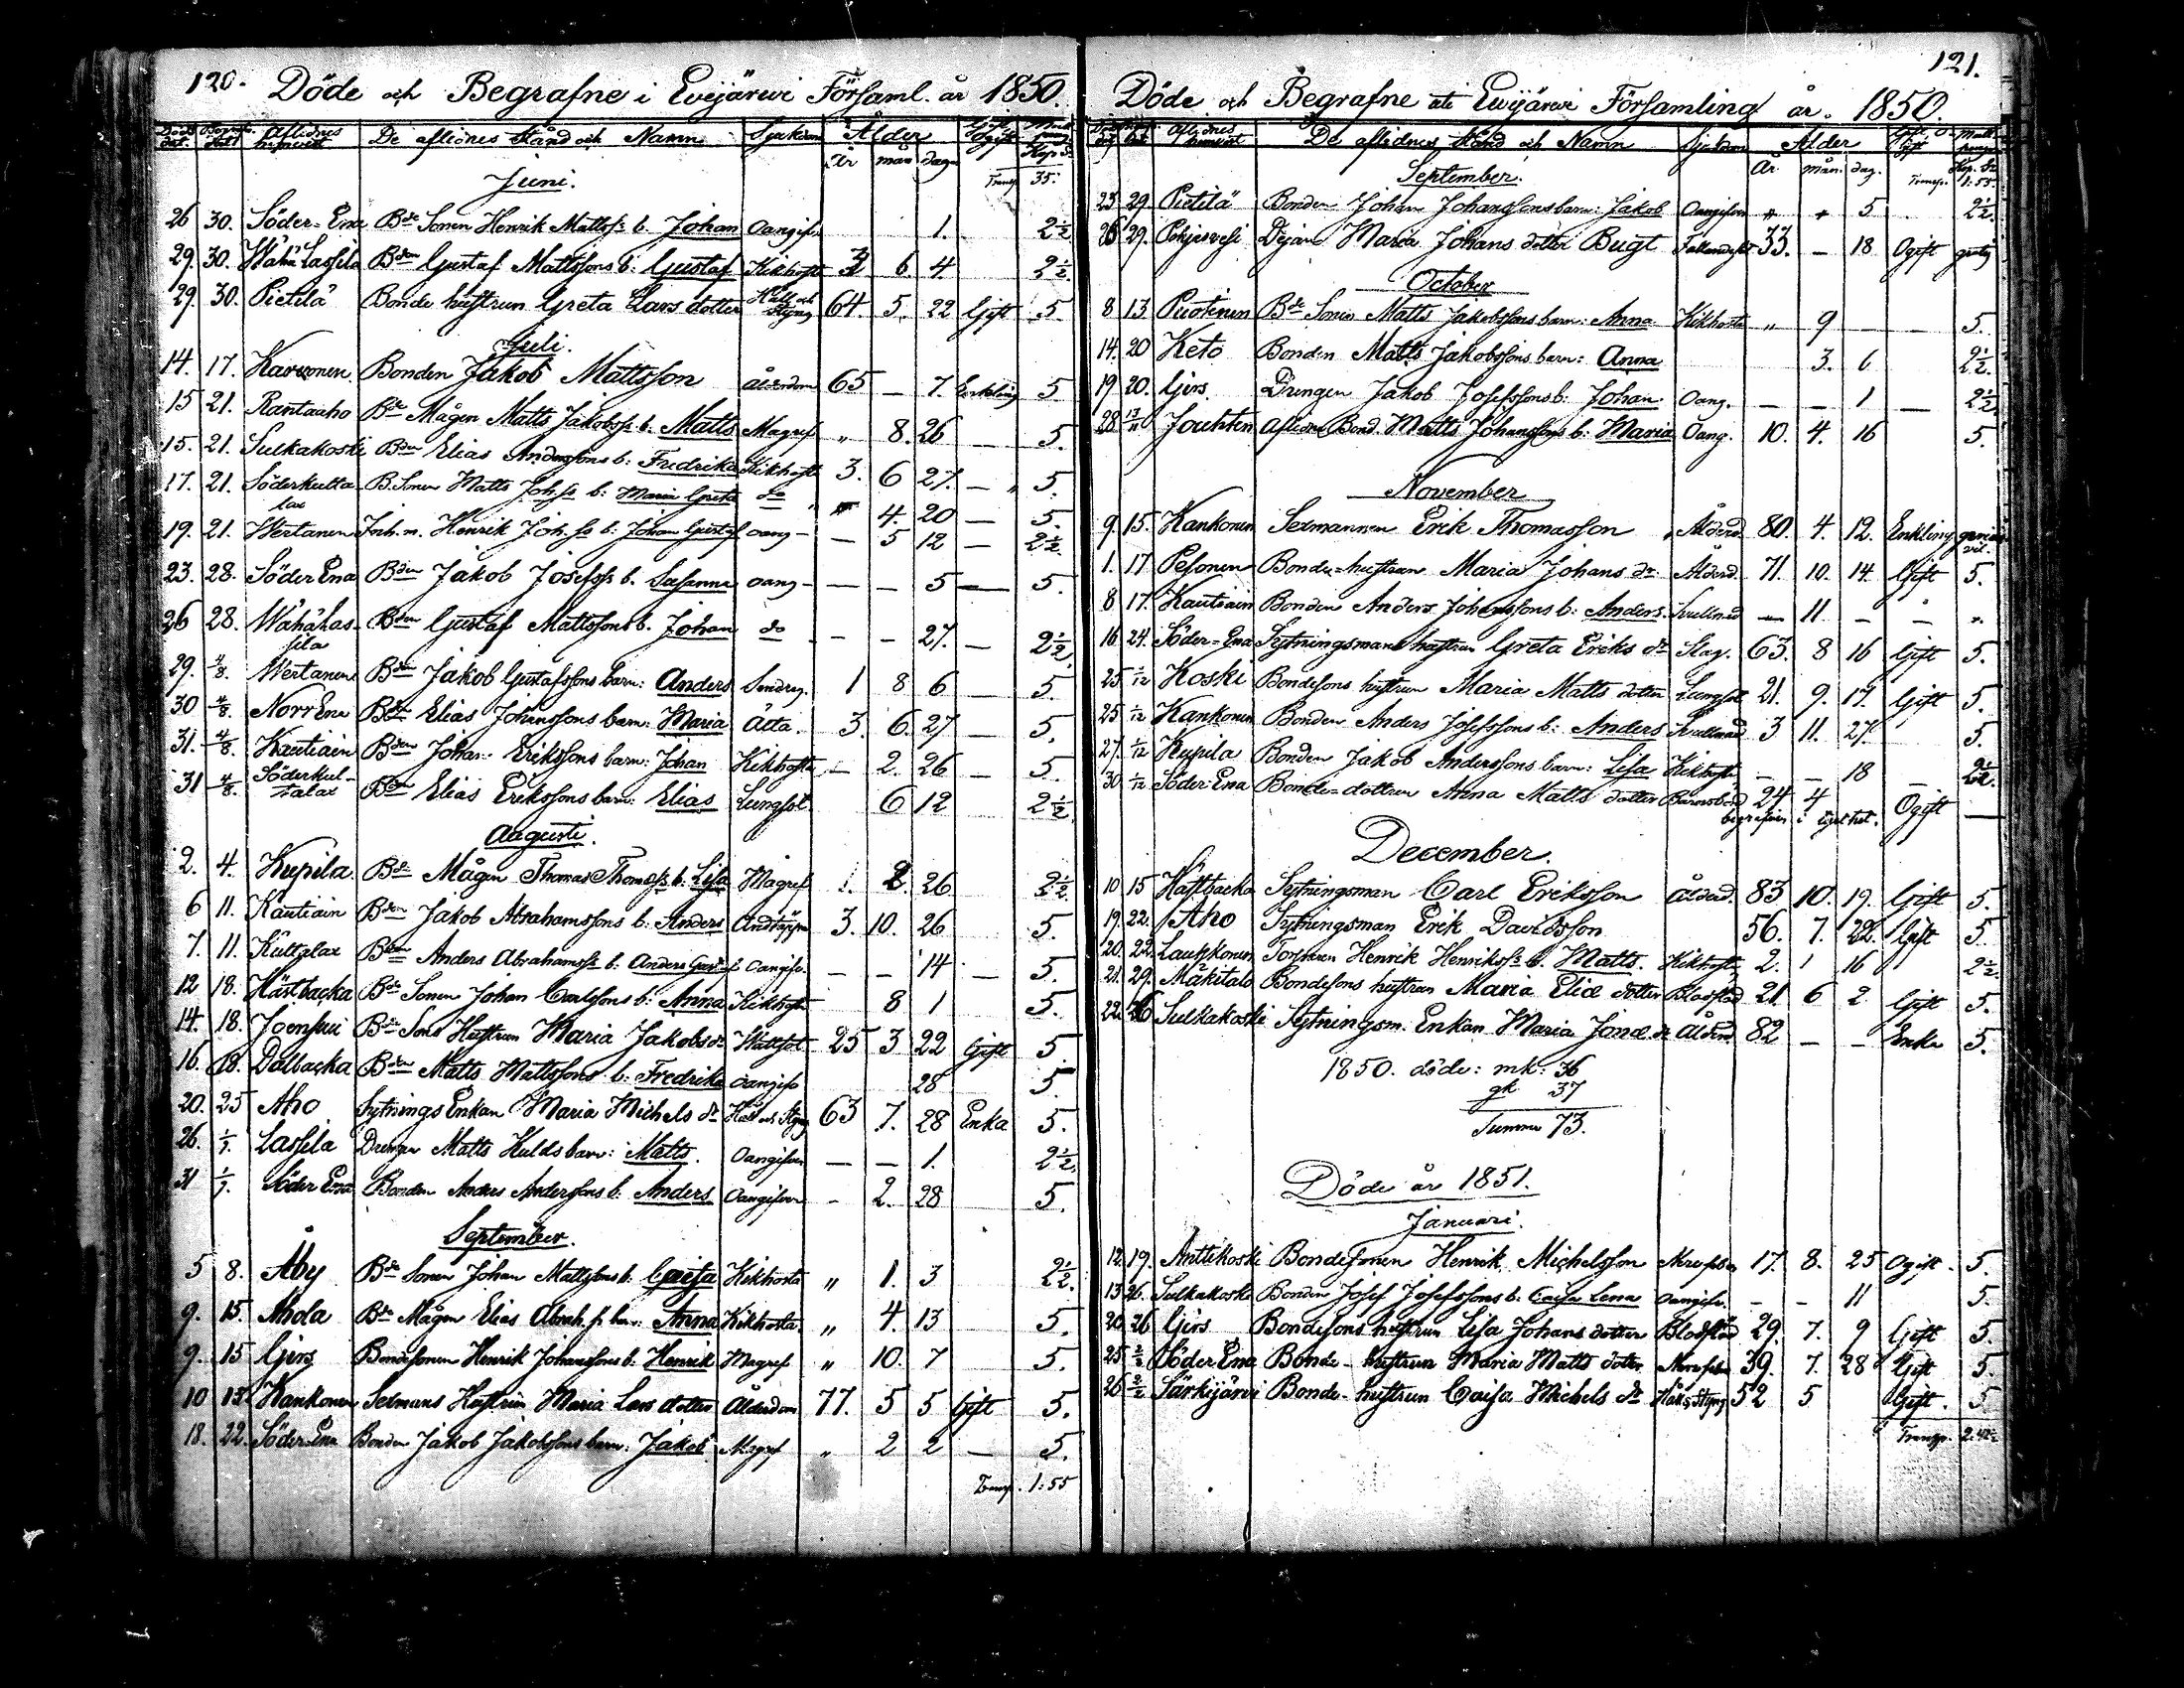 120. Döde och Begrafne i Evijärvi Församl. år 1850.
Aflidnes hemvist De aflidnes Stånd och Namn Sjukdom Ålder
År mån dagar Kop. S.
Juni. Transp. 35.
26 30. Söder-Ena Bde Sonen Henrik Mattss. b. Johan Oangif. 1. 2½
29. 30. Wähä Lassila Bden Gustaf Mattssons b: Gustaf Kikhosta 3 6. 4. 2½
29. 30. Pietilä Bonde hustrun Greta Lars dotter Håll och Styng 64. 5. 22 Gift 5.
Juli.
14. 17. Karvonen Bonden Jakob Mattsson ålderdom 65 — 7. Enkling 5
15 21. Rantaaho Bde Mågen Matts Jakobss. b. Matts Magref " 8. 26 — 5.
15. 21. Sulkakoski Bden Elias Anderssons b: Fredrika Kikhosta 3. 6 27. — 5.
17. 21. Söderkulta lax B. Sonen Matts Joh. ss. b: Maria Greta do " 4. 20 — 5.
19. 21. Wertanen Inh. m. Henrik Joh. ss. b: Johan Gustaf oang — — 5 12 — 2½
23. 28. Söder Ena Bden Jakob Josefss. b. Susanna oang — — — 5 — 5.
26 28. Wähähas-sila Bden Gustaf Mattssons b. Johan do — — 27. — 2½
29. 4/8. Wertanen Bden Jakob Gustafssons barn: Anders 1 8 6 — 5.
30 4/8. Norr Ena Bden Elias Johanssons barn: Maria Ålta. 3. 6. 27 — 5.
31. 4/8. Kautiain Bden Johan Erikssons barn: Johan Kikhosta — 2. 26 — 5.
31 4/8. Söderkul-talax Bden Elias Erikssons barn: Elias Lungsot 6 12 2½
Augusti.
2. 4. Kupila Bde Mågen Thomas Thomass. b. Lisa Magref 1. 2 26 2½
6 11. Kautiain Bden Jakob Abrahamssons b: Anders Andtäppa 3. 10. 26 5.
7. 11. Kultalax Bden Anders Abrahamss. b: Anders Gust. Oangifv. — — 14 — 5.
12 18. Hästbacka Bde Sonen Johan Carlssons b: Anna Kikhosta 8 1 5.
14. 18. Joensuu Bde Sons Hustrun Maria Jakobs dr Wattsot 25 3 22 Gift 5.
16. 18. Dalbacka Bden Matts Mattssons b: Fredrika oangifv 28 5.
20. 25 Aho Sytnings Enkan Maria Michels dr Håll och Styng 63 7. 28 Enka 5.
26. 1/9. Lassila Drengen Matts Hulds barn: Matts. Oangifven — — 1. 2½
31 1/9. Söder Ena Bonden Anders Anderssons b. Anders Oangifven — 2. 28 5.
September.
5 8. Åby Bde Sonen Johan Mattssons b. Caisa Kikhosta " 1. 3 2½
9. 15. Ahola Bde Mågen Elias Abrah. s. barn: Anna Kikhosta " 4. 13 5.
9. 15 Girs Bondesonen Henrik Johanssons b: Henrik Magref " 10. 7 5.
10 15 Kankonen Sexmans Hustrun Maria Lars dotter Ålderdom 77. 5 5 Gift 5.
18. 22. Söder Ena Bonden Jakob Jakobssons barn: Jakob Magref " 2 2 — 5.
Transp. 1:55
121.
Döde och Begrafne uti Evijärvi Församling år. 1850.
Aflidnes hemvist De aflidnes Stånd och Namn Sjukdom Ålder
År. mån. dag.
September. Transp. 1:55.
23 29. Pietilä Bonden Johan Johanssons barn: Jakob Oangifven " " 5 2½.
26 29. Pohjesvesi Dejan Maria Johans dotter Bugt Fallandesot 33. — 18 Ogift
October
8 13. Puotinen Bde Sonen Matts Jakobssons barn: Anna Kikhosta " 9 — — 5.
14. 20 Keto Bonden Matts Jakobssons barn: Anna 3. 6 2½.
19 20. Girs. Drengen Jakob Josefssons b: Johan. Oang. — — 1 — 2½
28 13/11 Jouhten Aflidne Bond. Matts Johanssons b: Maria Oang. 10. 4. 16 5.
November
9. 15. Kankonen Sexmannen Erik Thomasson Ålderd. 80. 4. 12. Enkling
1. 17 Pesonen Bonde-hustrun Maria Johans dr Ålderd. 71. 10. 14. Gift 5.
8 17. Kautiain Bonden Anders Johanssons b: Anders. — 11. — — "
16 24. Söder-Ena Sytningsmans hustrun Greta Eriks dr Slag. 63. 8 16 Gift 5.
25 1/12 Koski Bondesons hustrun Maria Matts dotter Lungsot 21. 9. 17. Gift 5.
25 1/12 Kankonen Bonden Anders Josefssons b: Anders 3 11. 27. 5.
27. 1/12 Kupila Bonden Jakob Anderssons barn: Lisa Kikhosta — — 18 — 2½.
30 1/12 Söder Ena Bonde-dottren Anna Matts dotter Barnsbörd 24 4 Ogift —
begrafven i tysthet.
December.
10 15 Hästbacka Sytningsman Carl Eriksson Ålderd. 83 10. 19. Gift 5.
19. 22. Aho Sytningsman Erik Davidsson 56. 7. 22. Gift 5
20. 22. Laukkonen Torparen Henrik Henrikss. b. Matts. Kikhosta 2. 1 16 2½
21. 29. Mäkitalo Bondesons hustrun Maria Eliæ dotter Blodstöd 21. 6 2 Gift 5.
22 26 Sulkakoski Sytningsm. Enkan Maria Jonæ dr Ålderd. 82 — — Enka 5.
1850. döde: mk: 36
qk 37
Summa 73.
Döde år 1851.
Januari.
12. 19. Anttikoski Bondesonen Henrik Michelsson 17. 8. 25 Ogift. 5.
13 26. Sulkakoski Bonden Josef Josefssons b: Caisa Lena oangifv. — — 11 5.
20 26 Girs Bondesons hustrun Lisa Johans dotter Blodstöd 29. 7. 9 Gift 5.
25 2/2 Söder Ena Bonde-hustrun Maria Matts dotter 39. 7. 28 Gift 5.
26 2/2 Särkijärvi Bonde-hustrun Caisa Michels dr Håll o Styng 52 5 Gift. 5
Transp. 2:42½